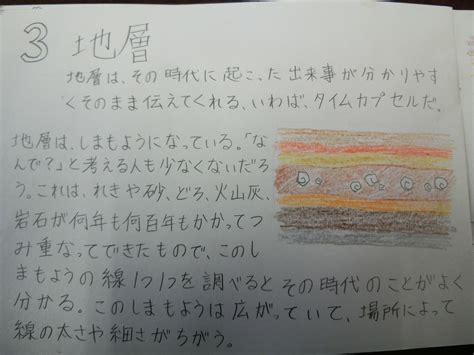 3 地層
地層は、その時代に起こった出来事が分かりやす
くそのまま伝えてくれる、いわば、タイムカプセルだ。
地層は、しまもようになっている。「な
んで?」と考える人も少なくないだろ
う。これは、れきや砂、どろ、火山灰、
岩石が何年も何百年もかかってつ
み重なってできたもので、このし
まもようの線1つ1つを調べるとその時代のことがよく
分かる。このしまもようは広がっていて、場所によって
線の太さや細さがちがう。